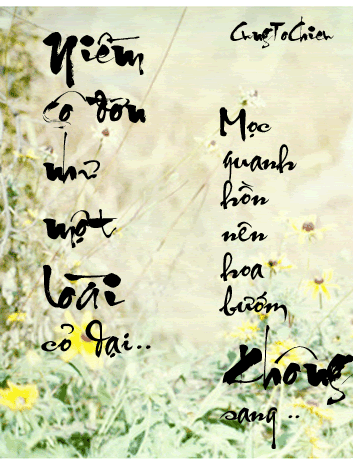 CungToChien
Niềm
cô đơn
như
một
loài
cỏ dại..
Mọc
quanh
hồn
nên
hoa
bướm
không
sang ..